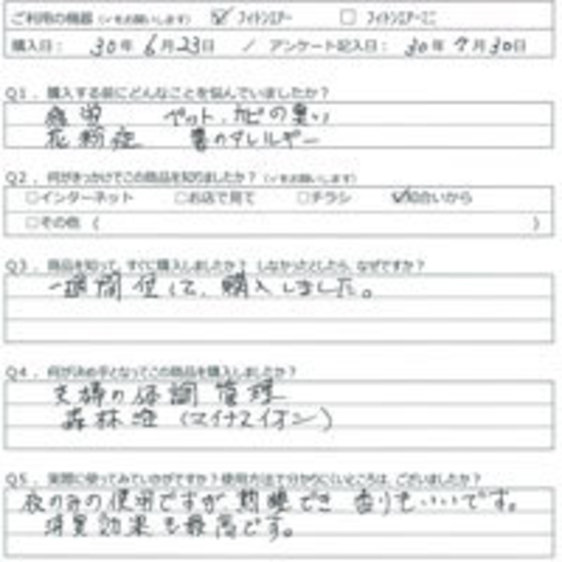 ご利用の機器(✓をお願いします) ☑ フィトンエアー □ フィトンエアーミニ
購入日: 30年 6月23日 / アンケート記入日: 30年 9月30日
Q1.購入する前にどんなことを悩んでいましたか?
ペット、カビの臭い
花粉症 妻のアレルギー
Q2.何がきっかけでこの商品を知りましたか?(✓をお願いします)
□インターネット □お店で見て □チラシ ☑知合いから
□その他 ( )
Q3.商品を知って、すぐに購入しましたか? しなかったとしたら、なぜですか?
一週間使して、購入しました。
Q4.何が決め手となってこの商品を購入しましたか?
夫婦の体調管理
森林浴 (マイナスイオン)
Q5.実際に使ってみていかがですか?使用方法で分かりにくいところは、ございましたか?
夜のみの使用ですが 熟睡でき 香りもいいです。
消臭効果も最高です。